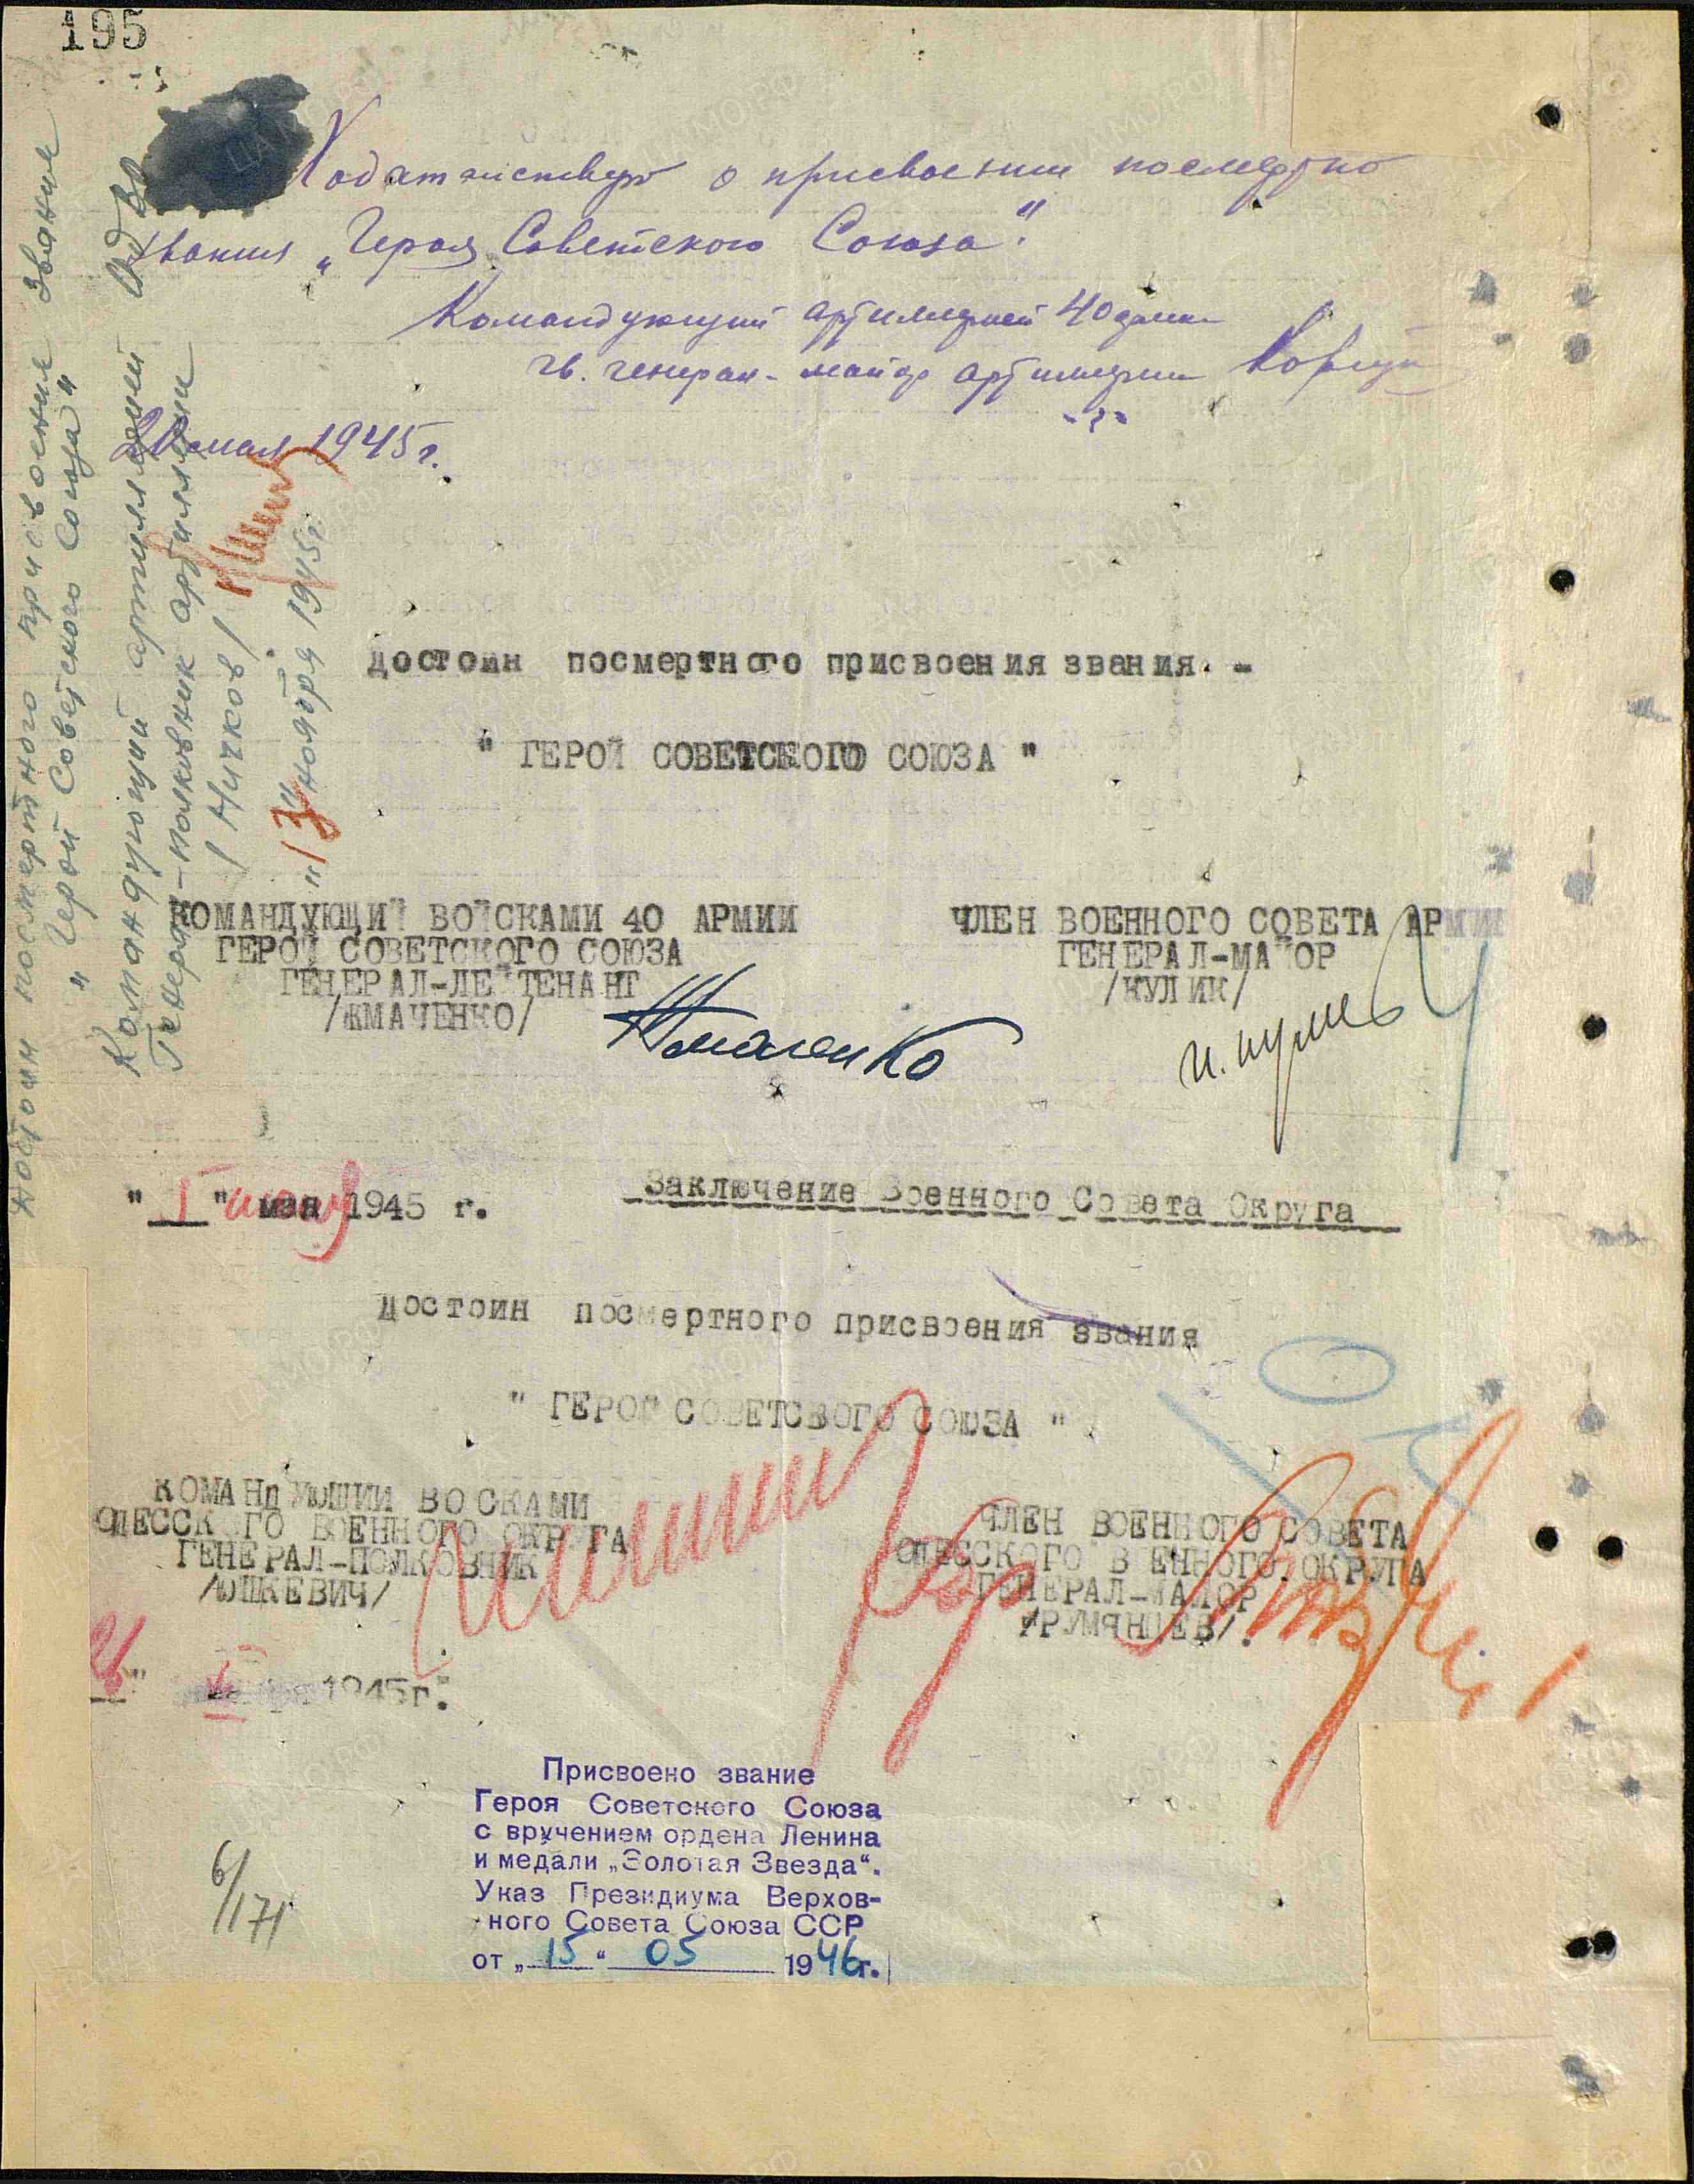 195
Ходатайствую о присвоении посмертно
звания „Героя Советского Союза“.
Командующий артиллерией 40 армии
гв. генерал-майор артиллерии
20 мая 1945 г.
Достоин посмертного присвоения звания
"Герой Советского Союза"
Командующий артиллерией ОдВО
Генерал-полковник артиллерии
/Ничков/
"13" ноября 1945г.
Достоин посмертного присвоения звания. -
" ГЕРОЙ СОВЕТСКОГО СОЮЗА "
КОМАНДУЮЩИЙ ВОЙСКАМИ 40 АРМИИ
ГЕРОЙ СОВЕТСКОГО СОЮЗА
ГЕНЕРАЛ-ЛЕЙТЕНАНТ
/ЖМАЧЕНКО/
Жмаченко
ЧЛЕН ВОЕННОГО СОВЕТА АРМИИ
ГЕНЕРАЛ-МАЙОР
/КУЛИК/
"1" мая 1945 г.
Заключение Военного Совета Округа
Достоин посмертного присвоения звания
" ГЕРОЙ СОВЕТСКОГО СОЮЗА "
КОМАНДУЮЩИЙ ВОЙСКАМИ
ОДЕССКОГО ВОЕННОГО ОКРУГА
ГЕНЕРАЛ-ПОЛКОВНИК
/ЮШКЕВИЧ/
ЧЛЕН ВОЕННОГО СОВЕТА
ОДЕССКОГО ВОЕННОГО ОКРУГА
ГЕНЕРАЛ-МАЙОР
/РУМЯНЦЕВ/.
1945г.
Присвоено звание
Героя Советского Союза
с вручением ордена Ленина
и медали „Золотая Звезда“.
Указ Президиума Верхов-
ного Совета Союза ССР
от „15“ 05 1946г.
6/171